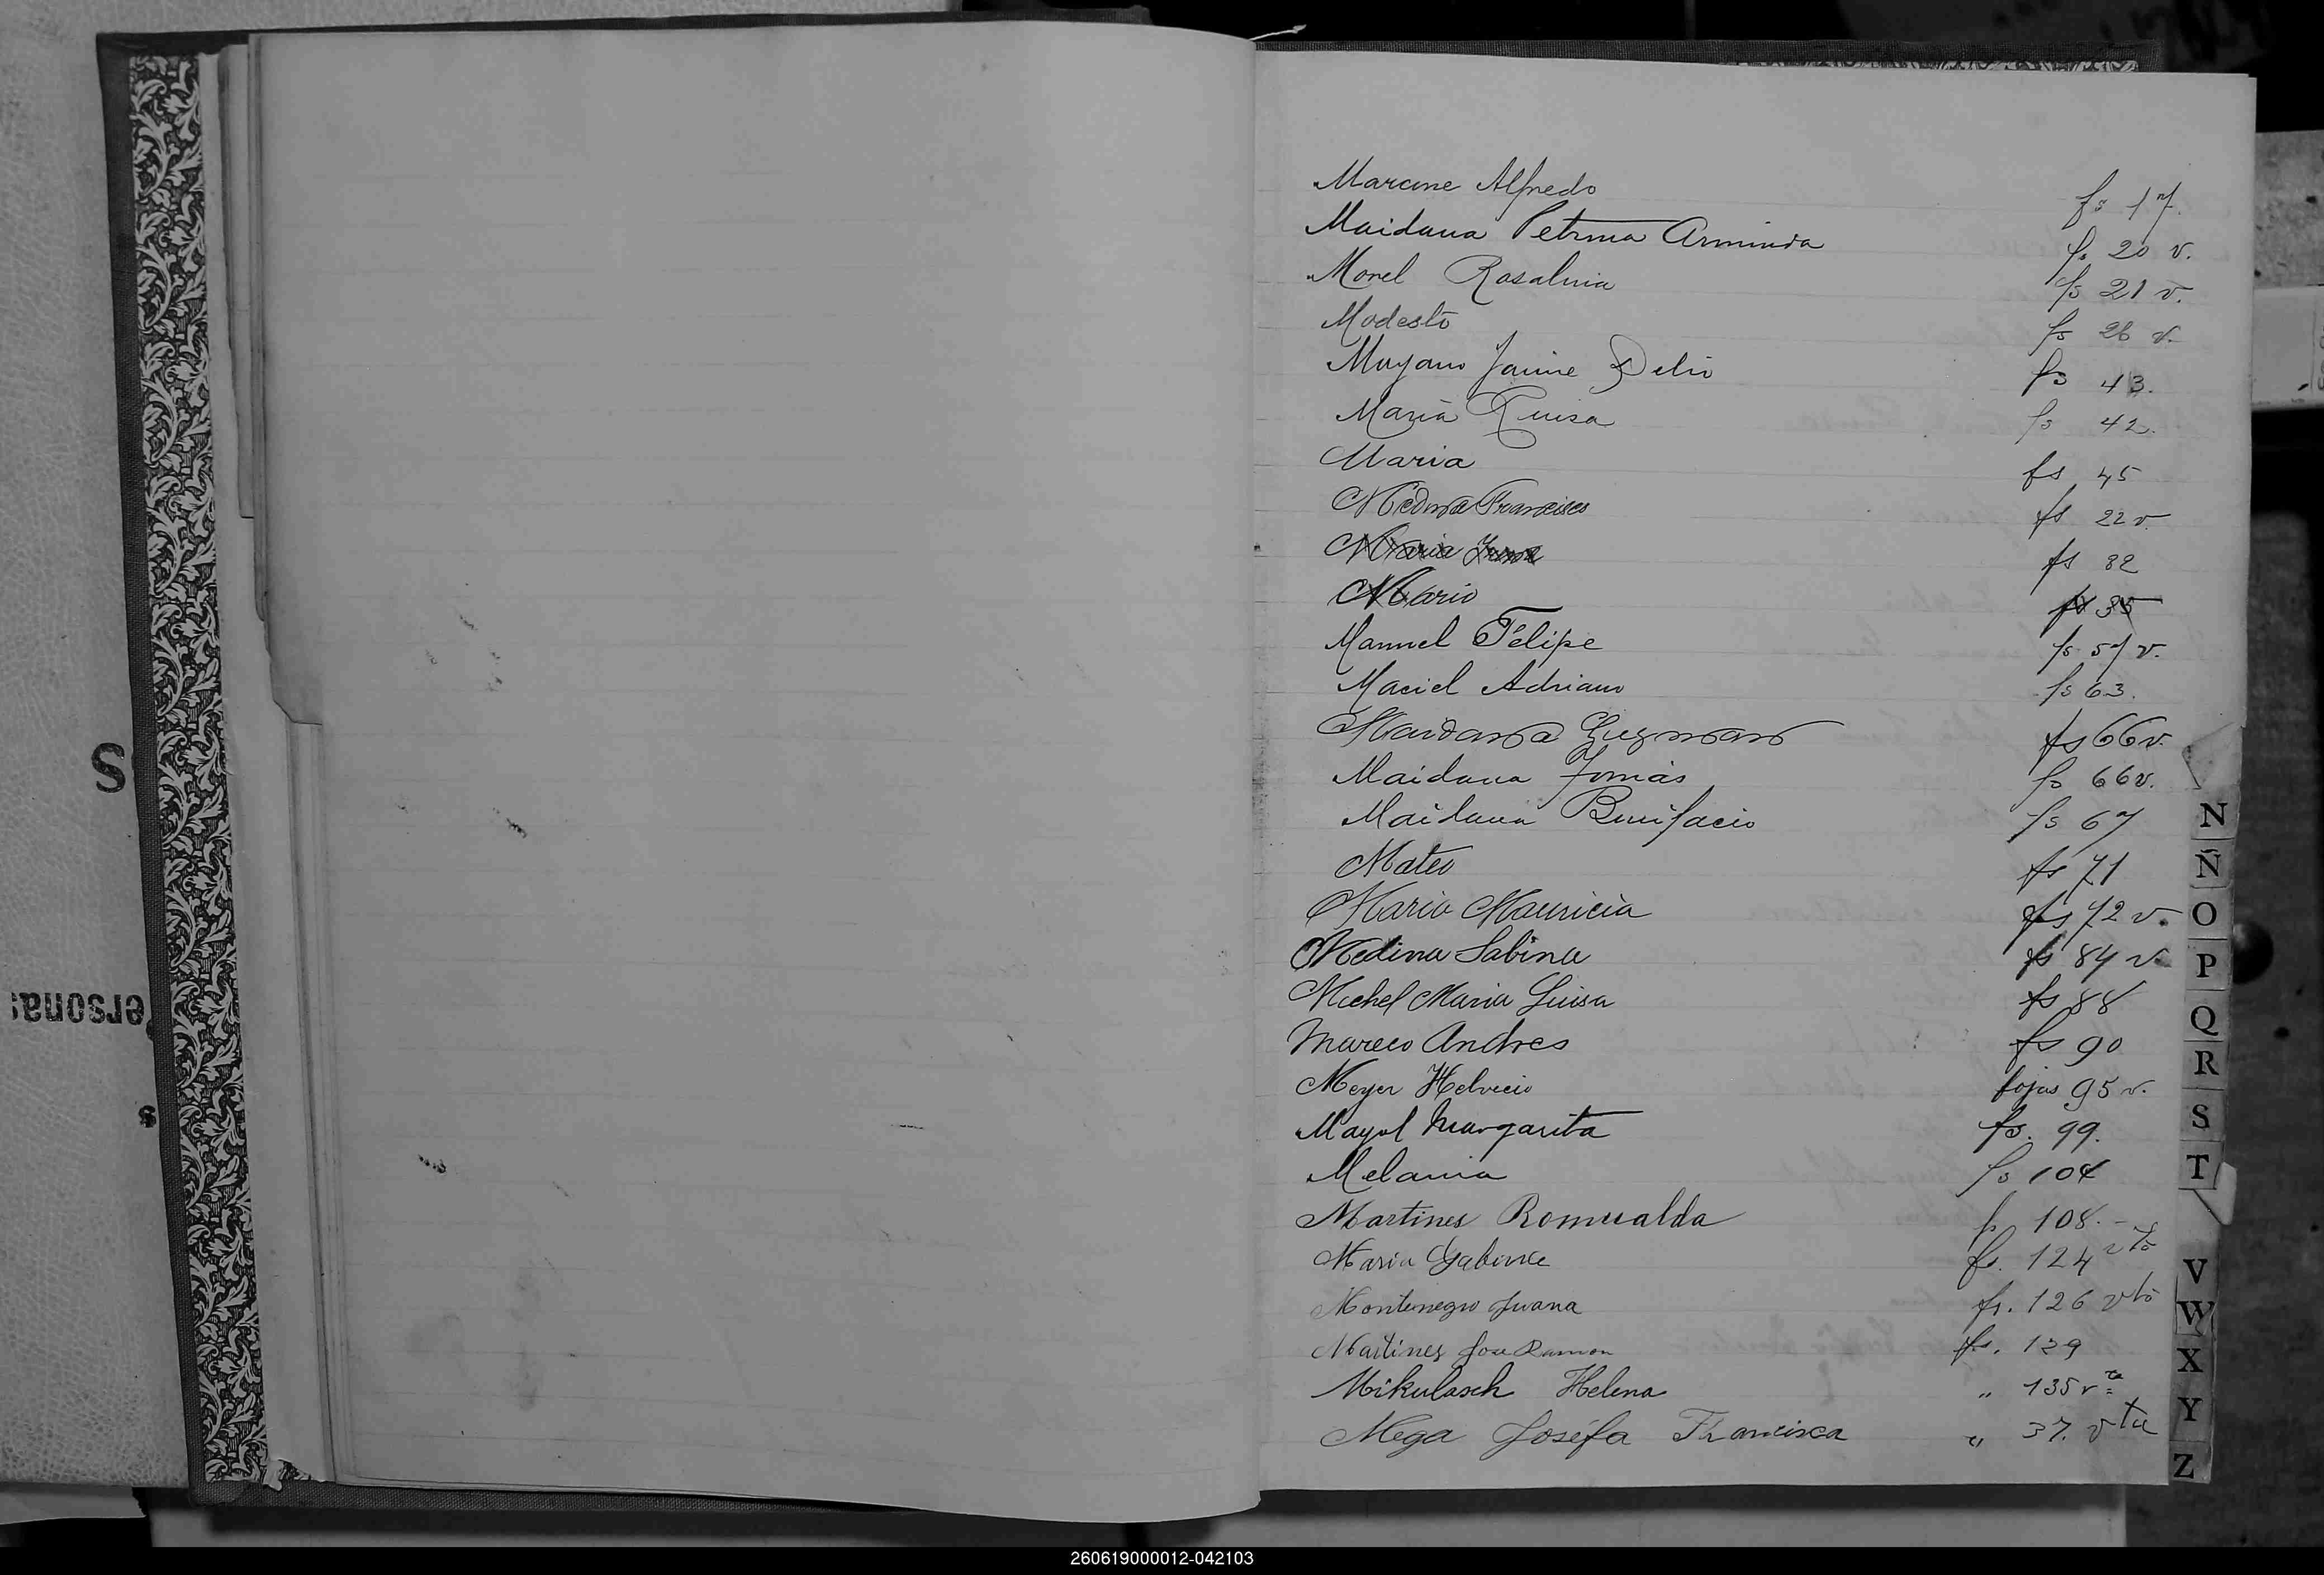 Marcone Alfredo fs 17.
Maidana Petrona Arminda fs 20 v.
Morel Rosalina fs 21 v.
Modesto fs 26 v.
Moyano Jaime Delio fs 43.
María Luisa fs 42.
Maria fs 45
Medina Francisco fs 22 v.
Maria Juana fs 32
Mario fs 35
Manuel Felipe fs 57 v.
Maciel Adriano fs 63.
Maidana Guzman fs 66 v.
Maidana Tomás fs 66 v.
Maidana Bonifacio fs 67
Mateo fs 71
Maria Mauricia fs 72 v.
Medina Sabina fs 84 v.
Michel Maria Luisa fs 88
Mareco Andres fs 90
Meyer Helvecio fojas 95 v.
Mayol Margarita fs. 99.
Melania fs 104
Martines Romualda fs 108.-
Maria Gabina fs. 124 vto
Montenegro Juana fs. 126 vto
Martines Jose Ramon fs. 129
Mikulasch Helena " 135 vta
Mega Joséfa Francisca " 37. vta
N
Ñ
O
P
Q
R
S
T
V
W
X
Y
Z
S
ersona
s
260619000012-042103